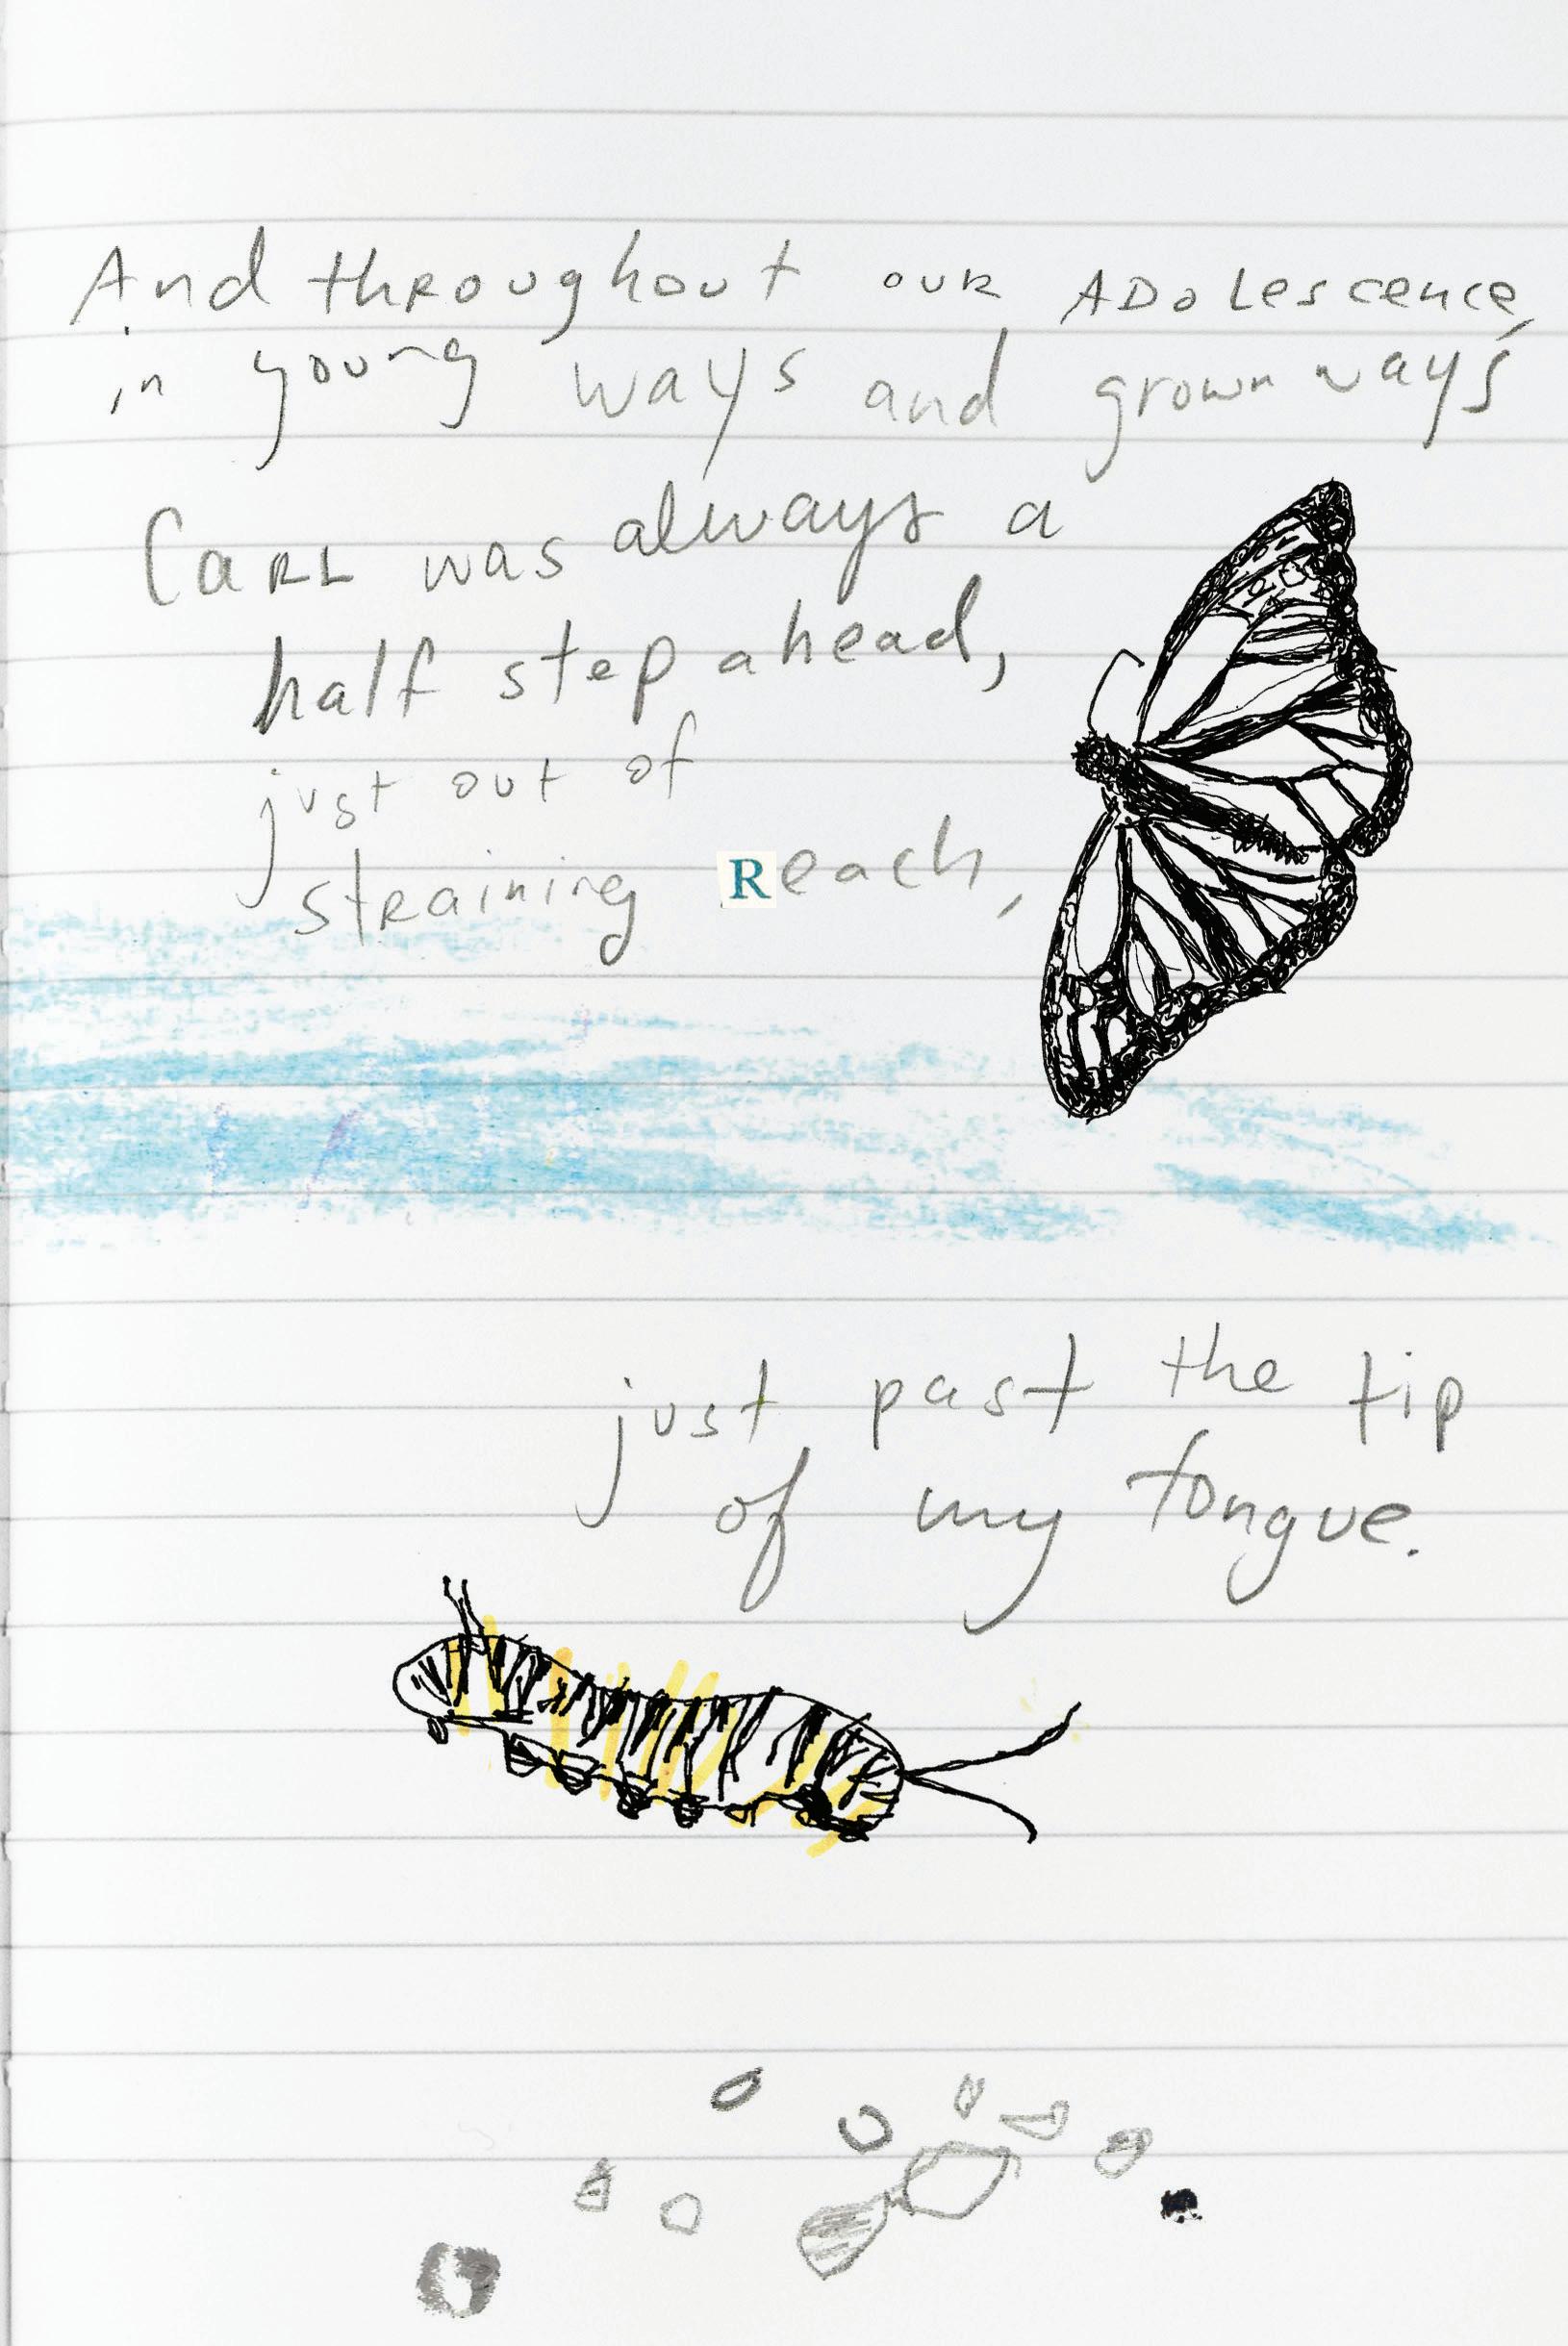 And throughout our ADolescence,
in young ways and grown ways
CARL was always a
half step ahead,
just out of
straining Reach,
just past the tip
of my tongue.